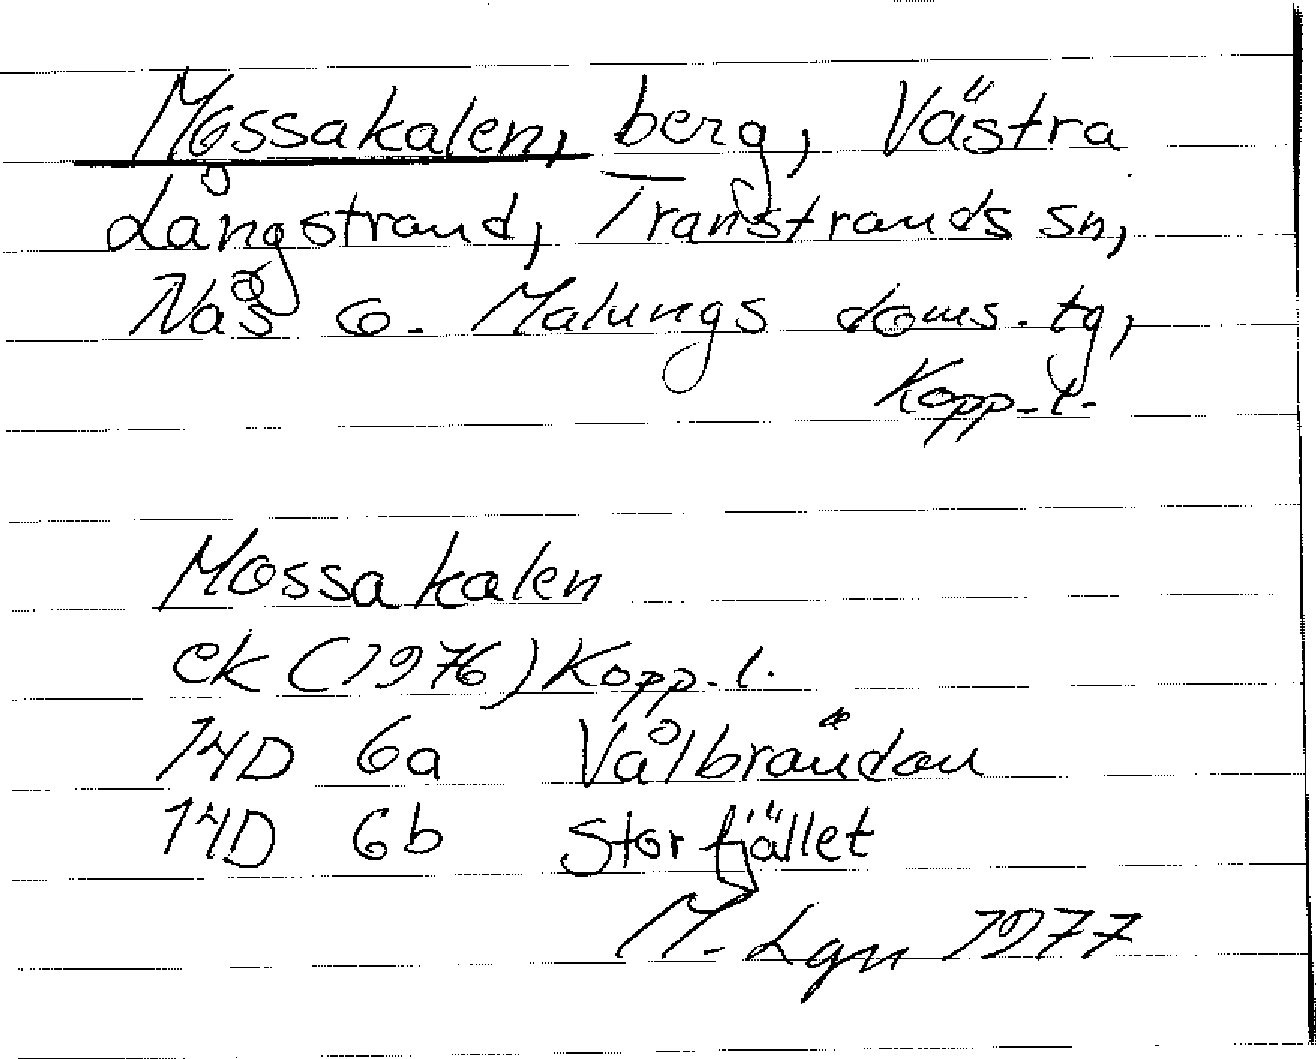 Mossakalen, berg, Västra
Långstrand, Transtrands sn,
Nås o. Malungs doms. tg,
Kopp. l.
Mossakalen
ek (1976) Kopp. l.
14D 6a Vålbrändan
14D 6b Storfjället
M. Lgn 1977